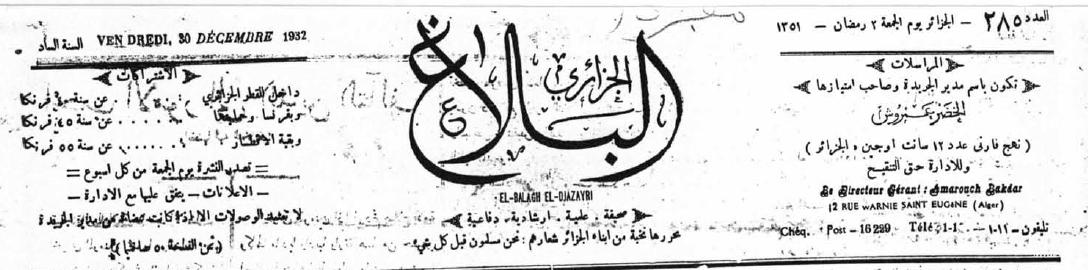 العدد ٢٨٥ — الجزائر يوم الجمعة ٢ رمضان — ١٣٥١
المراسلات
تكون باسم مدير الجريدة وصاحب امتيازها
الخضر عمروش
( نهج فارني عدد ١٢ سانت اوجين ، الجزائر )
وللادارة حق التنقيح
Le Directeur Gérant : Amarouch Lakdar
12 RUE WARNIE SAINT EUGÈNE (Alger)
تليفون — ١٢-١٠ Chéq. Post - 16229 Télé. 1-1
البلاغ
الجزائري
EL-BALAGH EL-DJAZAYRI
صحيفة ، علمية ، ارشادية ، دفاعية
يحررها نخبة من ابناء الجزائر شعارهم : نحن مسلمون قبل كل شيء
VENDREDI, 30 DÉCEMBRE 1932 السنة السا
الاشتراكات
داخل القطر الجزائري عن سنة ٤٠ فرنكا
وبفرنسا عن سنة ٤٥ فرنكا
وبقية الاقطار عن سنة ٥٥ فرنكا
= تصدر النشرة يوم الجمعة من كل اسبوع =
— الاعلانات — يتفق عليها مع الادارة —
لا تعتمد الوصولات الا اذا كانت ممضاة من مدير الجريدة
(ثمن القطعة ٥٠ صانتيما)